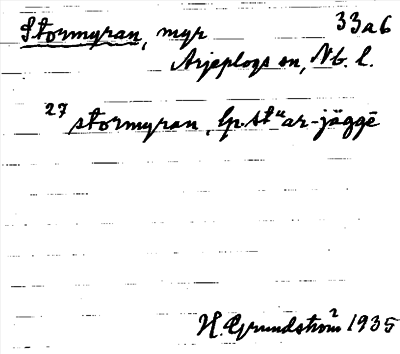 Stormyran, myr 33a6
Arjeplogs sn, Nb. l.
27 stormyran, lp. stᵘar-jäggē
H. Grundström 1935